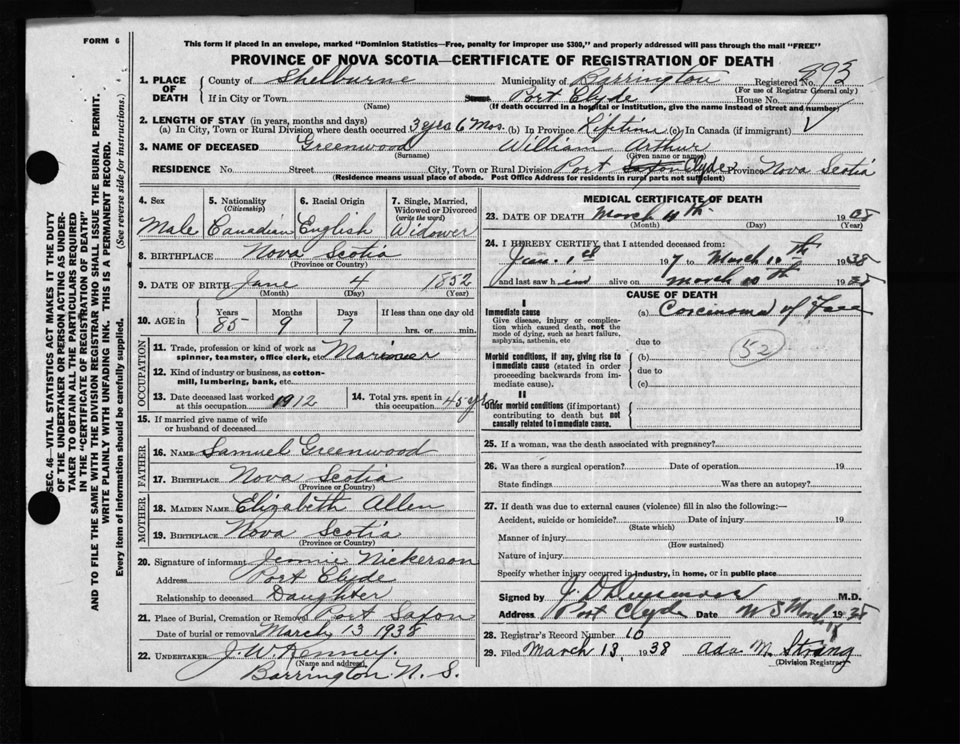 FORM 6
This form if placed in an envelope, marked "Dominion Statistics—Free, penalty for improper use $300," and properly addressed will pass through the mail "FREE"
PROVINCE OF NOVA SCOTIA—CERTIFICATE OF REGISTRATION OF DEATH
SEC. 46—VITAL STATISTICS ACT MAKES IT THE DUTY
OF THE UNDERTAKER OR PERSON ACTING AS UNDER-
TAKER TO OBTAIN ALL THE PARTICULARS REQUIRED
IN THE "CERTIFICATE OF REGISTRATION OF DEATH"
AND TO FILE THE SAME WITH THE DIVISION REGISTRAR WHO SHALL ISSUE THE BURIAL PERMIT.
WRITE PLAINLY WITH UNFADING INK. THIS IS A PERMANENT RECORD.
Every item of information should be carefully supplied. (See reverse side for instructions.)
1. PLACE OF DEATH
County of Shelburne Municipality of Barrington Registered No. 893
(For use of Registrar General only)
If in City or Town Street Port Clyde House No.
(Name) (If death occurred in a hospital or institution, give the name instead of street and number)
2. LENGTH OF STAY (in years, months and days)
(a) In City, Town or Rural Division where death occurred 3 yrs 6 Mos. (b) In Province Liftime (c) In Canada (if immigrant)
3. NAME OF DECEASED Greenwood William Arthur
(Surname) (Given name or names)
RESIDENCE No. Street City, Town or Rural Division Port Saxon Clyde Province Nova Scotia
(Residence means usual place of abode. Post Office Address for residents in rural parts not sufficient)
4. Sex Male
5. Nationality (Citizenship) Canadian
6. Racial Origin English
7. Single, Married, Widowed or Divorced (write the word) Widower
8. BIRTHPLACE Nova Scotia
(Province or Country)
9. DATE OF BIRTH June 4 1852
(Month) (Day) (Year)
10. AGE in Years Months Days If less than one day old
85 9 7 hrs. or min.
OCCUPATION
11. Trade, profession or kind of work as spinner, teamster, office clerk, etc. Mariner
12. Kind of industry or business, as cotton-mill, lumbering, bank, etc.
13. Date deceased last worked at this occupation 1912
14. Total yrs. spent in this occupation 45 yrs
15. If married give name of wife or husband of deceased
FATHER
16. NAME Samuel Greenwood
17. BIRTHPLACE Nova Scotia
(Province or Country)
MOTHER
18. MAIDEN NAME Elizabeth Allen
19. BIRTHPLACE Nova Scotia
(Province or Country)
20. Signature of informant Jennie Nickerson
Address Port Clyde
Relationship to deceased Daughter
21. Place of Burial, Cremation or Removal Port Saxon
Date of burial or removal March 13 1938
22. UNDERTAKER J. W. Kenney.
(Name and address)
Barrington N. S.
MEDICAL CERTIFICATE OF DEATH
23. DATE OF DEATH March 11th 1938
(Month) (Day) (Year)
24. I HEREBY CERTIFY, that I attended deceased from:
Jan. 1st 1937 to March 10th 1938
and last saw him alive on March 10th 1938
CAUSE OF DEATH
I
Immediate cause
Give disease, injury or complication which caused death, not the mode of dying, such as heart failure, asphyxia, asthenia, etc
(a) Carcinoma of Face
due to
Morbid conditions, if any, giving rise to immediate cause (stated in order proceeding backwards from immediate cause).
(b)
52
due to
(c)
II
Other morbid conditions (if important) contributing to death but not causally related to immediate cause.
25. If a woman, was the death associated with pregnancy?
26. Was there a surgical operation? Date of operation 19
State findings Was there an autopsy?
27. If death was due to external causes (violence) fill in also the following:—
Accident, suicide or homicide? Date of injury 19
(State which)
Manner of injury
(How sustained)
Nature of injury
Specify whether injury occurred in industry, in home, or in public place
Signed by M.D.
Address Port Clyde Date 1938
28. Registrar's Record Number 10
29. Filed March 13, 1938 Ada M. Strang
(Division Registrar)